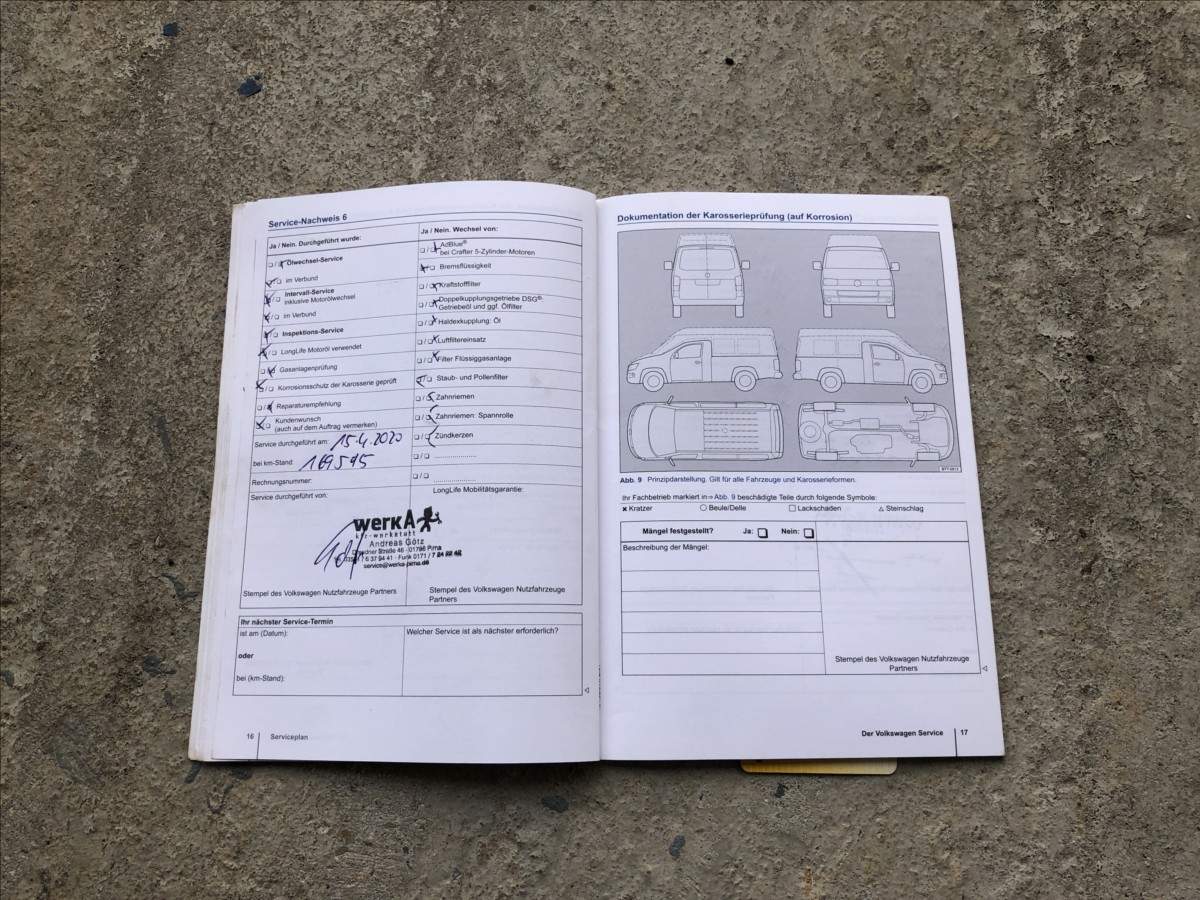 Service-Nachweis 6
Ja / Nein. Durchgeführt wurde:
Ölwechsel-Service
im Verbund
Intervall-Service
inklusive Motorölwechsel
im Verbund
Inspektions-Service
LongLife Motoröl verwendet
Gasanlagenprüfung
Korrosionsschutz der Karosserie geprüft
Reparaturempfehlung
Kundenwunsch
(auch auf dem Auftrag vermerken)
Service durchgeführt am: 15.4.2020
bei km-Stand: 169595
Rechnungsnummer:
Service durchgeführt von:
Ja / Nein. Wechsel von:
AdBlue®
bei Crafter 5-Zylinder-Motoren
Bremsflüssigkeit
Kraftstofffilter
Doppelkupplungsgetriebe DSG®:
Getriebeöl und ggf. Ölfilter
Haldexkupplung: Öl
Luftfiltereinsatz
Filter Flüssiggasanlage
Staub- und Pollenfilter
Zahnriemen
Zahnriemen: Spannrolle
Zündkerzen
LongLife Mobilitätsgarantie:
werkA
kfz-werkstatt
Andreas Götz
Dresdner Straße 46 · 01796 Pirna
6 37 94 41 · Funk 0171 /
service@werka-pirna.de
Stempel des Volkswagen Nutzfahrzeuge Partners
Stempel des Volkswagen Nutzfahrzeuge
Partners
Ihr nächster Service-Termin
ist am (Datum):
oder
bei (km-Stand):
Welcher Service ist als nächster erforderlich?
16 Serviceplan
Dokumentation der Karosserieprüfung (auf Korrosion)
Abb. 9 Prinzipdarstellung. Gilt für alle Fahrzeuge und Karosserieformen.
Ihr Fachbetrieb markiert in ⇒ Abb. 9 beschädigte Teile durch folgende Symbole:
✖ Kratzer ○ Beule/Delle □ Lackschaden △ Steinschlag
Mängel festgestellt? Ja: ❑ Nein: ❑
Beschreibung der Mängel:
Stempel des Volkswagen Nutzfahrzeuge
Partners
Der Volkswagen Service 17